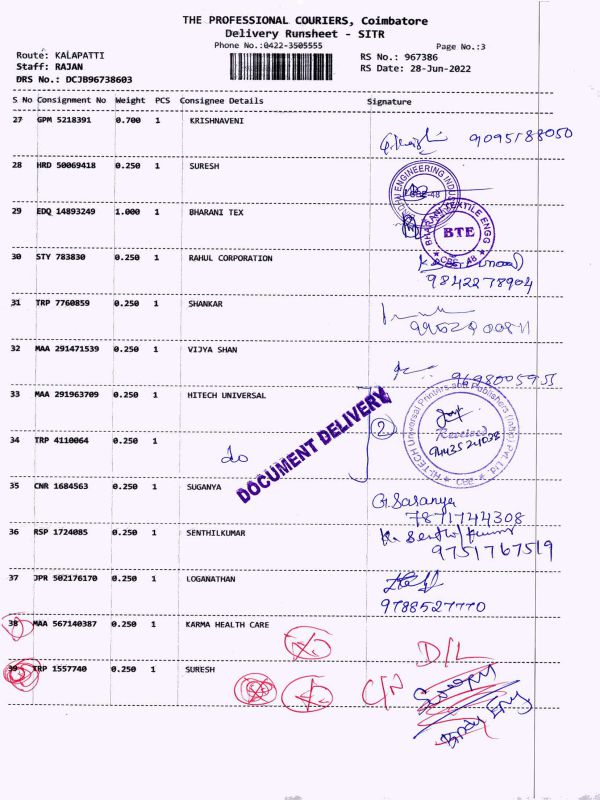 THE PROFESSIONAL COURIERS, Coimbatore
Delivery Runsheet - SITR
Phone No.:0422-3505555
Page No.:3
Route: KALAPATTI
RS No.: 967386
Staff: RAJAN
RS Date: 28-Jun-2022
DRS No.: DCJB96738603
S No Consignment No Weight PCS Consignee Details Signature
27 GPM 5218391 0.700 1 KRISHNAVENI
9095188050
28 HRD 50069418 0.250 1 SURESH
ENGINEERING
29 EDQ 14893249 1.000 1 BHARANI TEX
BHARANI TEXTILE ENGG
BTE
CBE-48
30 STY 783830 0.250 1 RAHUL CORPORATION
9842278904
31 TRP 7760859 0.250 1 SHANKAR
32 MAA 291471539 0.250 1 VIJYA SHAN
33 MAA 291963709 0.250 1 HITECH UNIVERSAL
DOCUMENT DELIVERY
2
HI-TECH Universal Printers and Publishers (India) Pvt. Ltd.
Received
CBE-4
34 TRP 4110064 0.250 1
do
35 CNR 1684563 0.250 1 SUGANYA
G. Saranya
7871744308
36 RSP 1724085 0.250 1 SENTHILKUMAR
9751767519
37 JPR 502176170 0.250 1 LOGANATHAN
9788527770
38 MAA 567140387 0.250 1 KARMA HEALTH CARE
D/L
39 TRP 1557740 0.250 1 SURESH
C/N